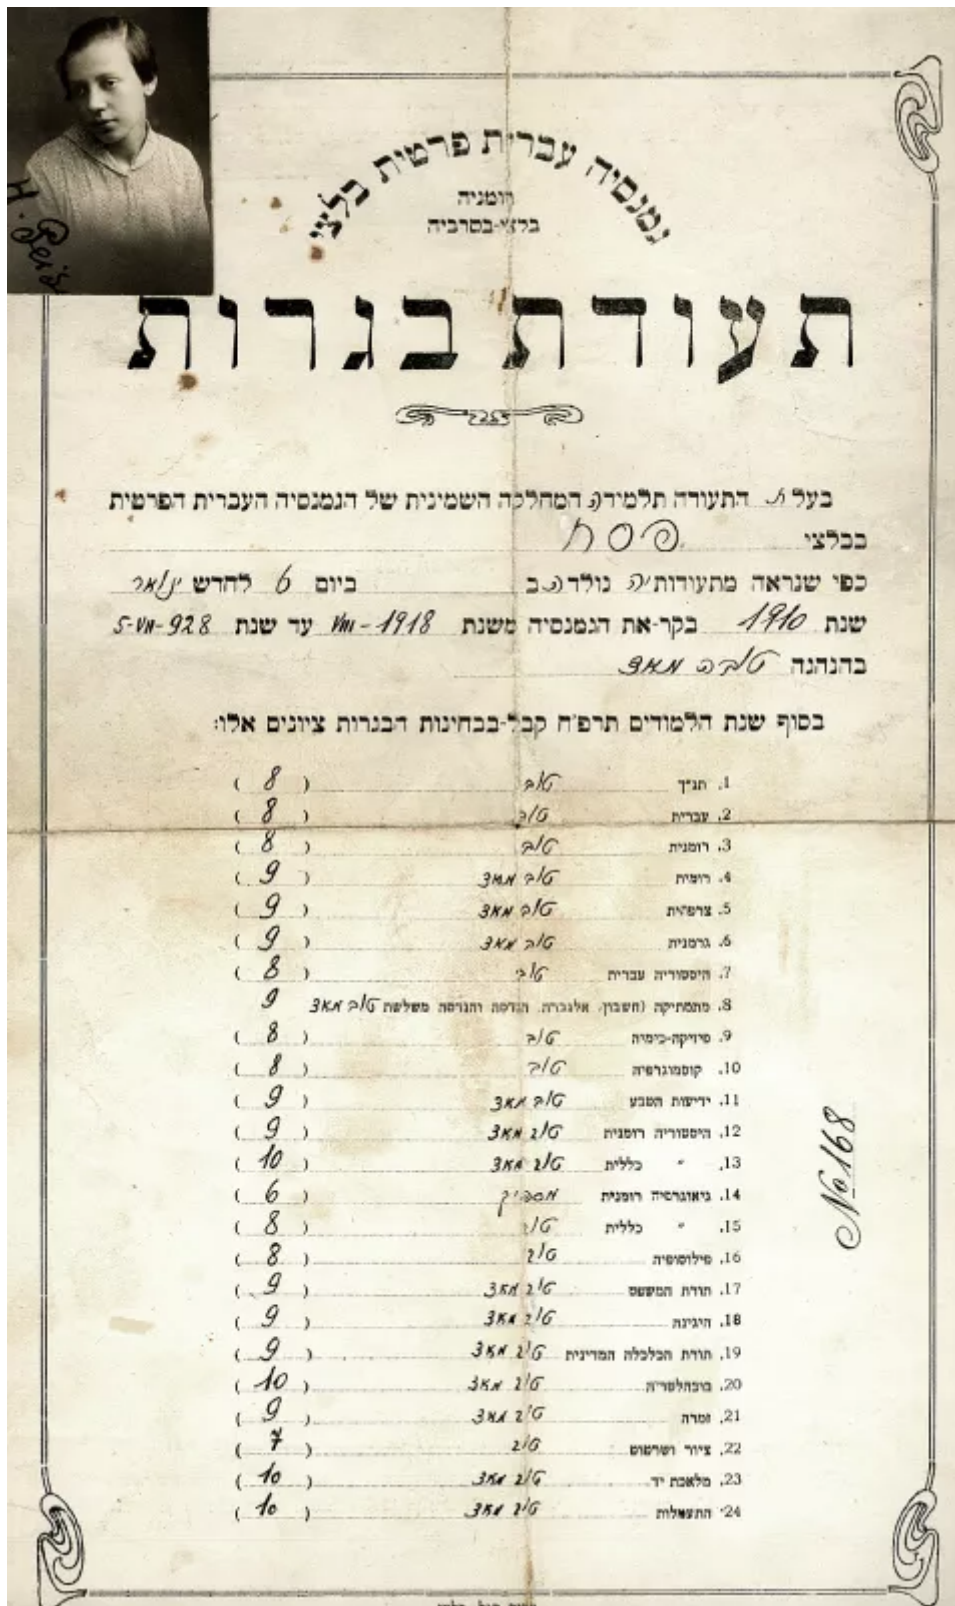 גמנסיה עברית פרטית בלצי
רומניה
בלצי-בסרביה
תעודת בגרות
בעלת התעודה תלמידה המחלקה השמינית של הגמנסיה העברית הפרטית
בבלצי פסח
כפי שנראה מתעודותיה נולדה ב ביום 6 לחדש ינואר
שנת 1910 בקר-את הגמנסיה משנת VIII-1918 עד שנת 5-VII-928
בהנהגה טובה מאד
בסוף שנת הלמודים תרפ״ח קבל-בבחינות הבגרות ציונים אלו:
1. תנ״ך טוב (8)
2. עברית טוב (8)
3. רומנית טוב (8)
4. רומית טוב מאד (9)
5. צרפתית טוב מאד (9)
6. גרמנית טוב מאד (9)
7. היסטוריה עברית טוב (8)
8. מתמתיקה (חשבון, אלגברה, הנדסה והנדסה משלשת טוב מאד 9
9. פיזיקה-כימיה טוב (8)
10. קוסמוגרפיה טוב (8)
11. ידיעות הטבע טוב מאד (9)
12. היסטוריה רומנית טוב מאד (9)
13. ״ כללית טוב מאד (10)
14. גיאוגרפיה רומנית מספיק (6)
15. ״ כללית טוב (8)
16. פילוסופיה טוב (8)
17. תורת המשפט טוב מאד (9)
18. היגינה טוב מאד (9)
19. תורת הכלכלה המדינית טוב מאד (9)
20. בוכהלטריה טוב מאד (10)
21. זמרה טוב מאד (9)
22. ציור ושרטוט טוב (7)
23. מלאכת יד טוב מאד (10)
24. התעמלות טוב מאד (10)
№168
H.